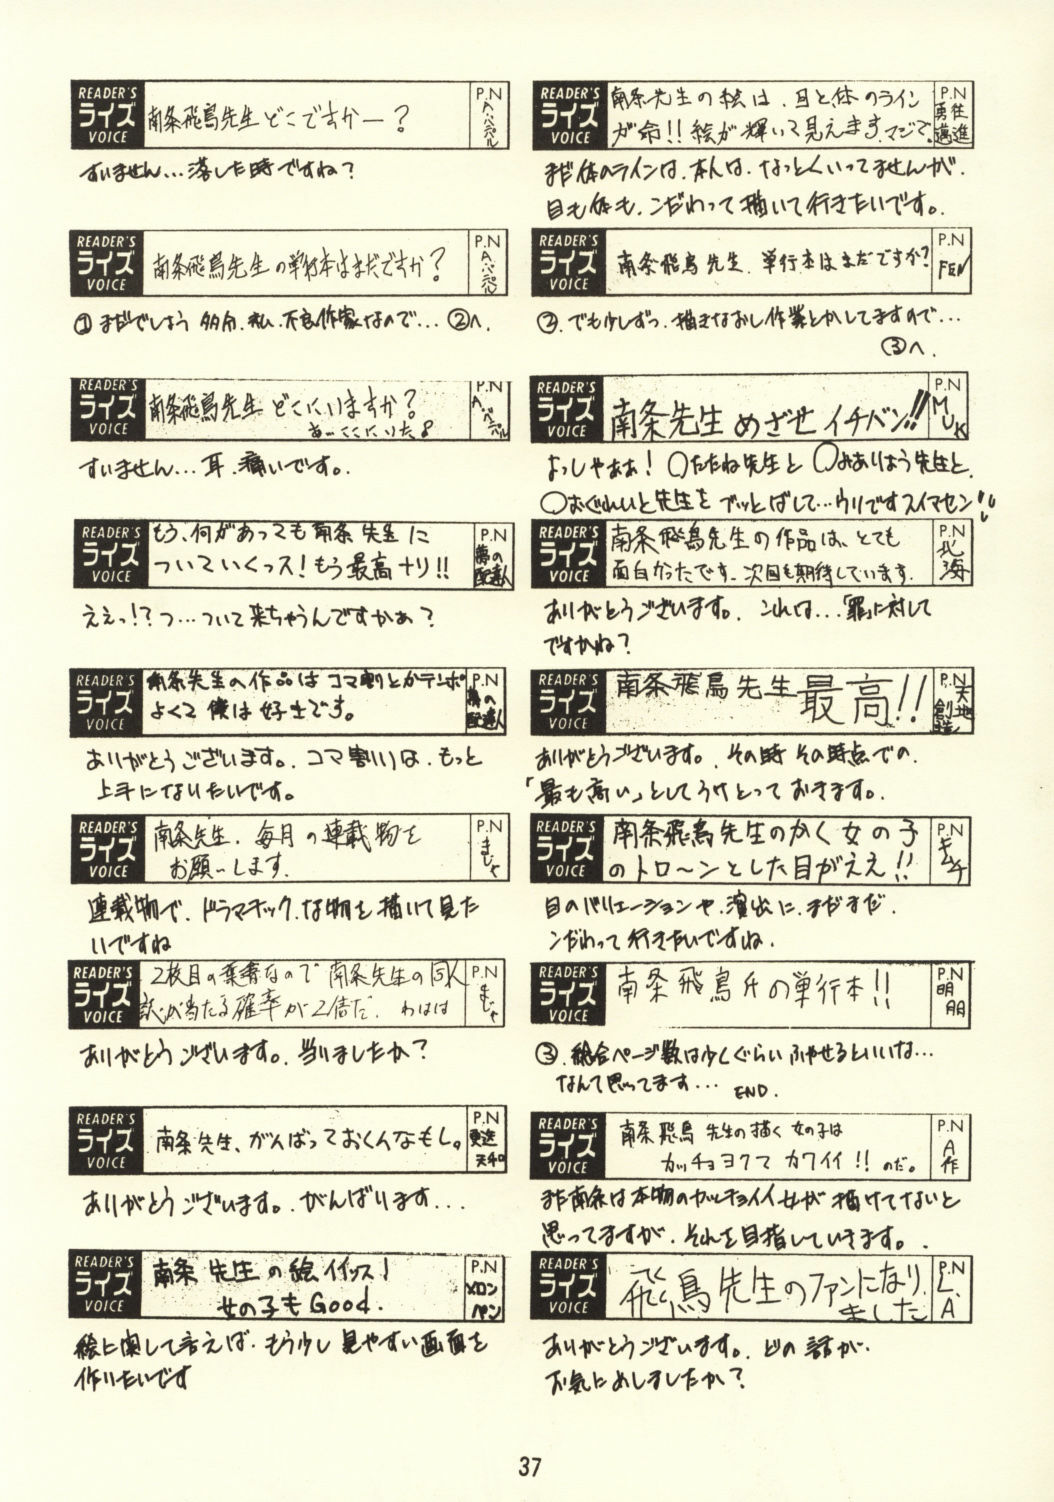 READER'S
ライズ
VOICE
南条飛鳥先生どこですかー?
P.N
A.ペンペル
すいません…落した時ですね?
READER'S
ライズ
VOICE
南条飛鳥先生の単行本はまだですか?
P.N
①まだでしょう 多分、私、不良作家なので…②へ.
READER'S
ライズ
VOICE
南条飛鳥先生 どこにいますか?
あ…ここにいた
P.N
すいません…耳、痛いです。
READER'S
ライズ
VOICE
もう、何があっても南条先生に
ついていくっス!もう最高ナリ!!
P.N
夢の
配達人
ええっ!?つ…ついて来ちゃうんですかぁ?
READER'S
ライズ
VOICE
南条先生の作品はコマ割とかテンポ
よくて僕は好きです。
P.N
夢の
配達人
ありがとうございます。コマ割りは、もっと
上手になりたいです。
READER'S
ライズ
VOICE
南条先生、毎月の連載物を
お願いします.
P.N
まじゃ
連載物で、ドラマチックな物を描いて見た
いですね
READER'S
ライズ
VOICE
2枚目の葉書なので南条先生の同人
誌が当たる確率が2倍だ. わはは
P.N
まじゃ
ありがとうございます。当りましたか?
READER'S
ライズ
VOICE
南条先生、がんばっておくんなもし。
P.N
ありがとうございます。がんばります…
READER'S
ライズ
VOICE
南条 先生の絵イイッス!
女の子もGood.
P.N
メロン
ペン
絵に関して言えば、もう少し見やすい画面を
作りたいです
READER'S
ライズ
VOICE
南条先生の絵は、目と体のライン
が命!!絵が輝いて見えます、マジで。
P.N
勇往
邁進
まだ体のラインは、本人は、なっとくいってませんが、
目も体も、こだわって描いて行きたいです。
READER'S
ライズ
VOICE
南条飛鳥先生、単行本はまだですか?
P.N
FEN
②、でも少しずつ、描きなおし作業とかしてますので…
③へ.
READER'S
ライズ
VOICE
南条先生めざせイチバン!!
P.N
MUK
よっしゃあぁ!○たたね先生と○みありほう先生と、
○おぐれいと先生をブッとばして…ウソですスイマセン!!
READER'S
ライズ
VOICE
南条飛鳥先生の作品は、とても
面白かったです、次回も期待しています.
P.N
北海
ありがとうございます。これは…「罪」に対して
ですかね?
READER'S
ライズ
VOICE
南条飛鳥先生最高!!
P.N
天地
創造
ありがとうございます。その時その時点での、
「最も高い」としてうけとっておきます。
READER'S
ライズ
VOICE
南条飛鳥先生のかく女の子
のトロ〜ンとした目がええ!!
P.N
キムチ
目のバリエーションや、演出に、まだまだ、
こだわって行きたいですね.
READER'S
ライズ
VOICE
南条飛鳥氏の単行本!!
P.N
明朋
③、総合ページ数は少くぐらいふやせるといいな…
なんて思ってます… END.
READER'S
ライズ
VOICE
南条飛鳥 先生の描く女の子は
カッチョヨクて カワイイ!!のだ。
P.N
A作
まだ南条は本物のカッチョイイ女が描けてないと
思ってますが、それを目指していきます。
READER'S
ライズ
VOICE
飛鳥先生のファンになり
ました
P.N
L.A
ありがとうございます。どの話が、
お気にめしましたか?
37